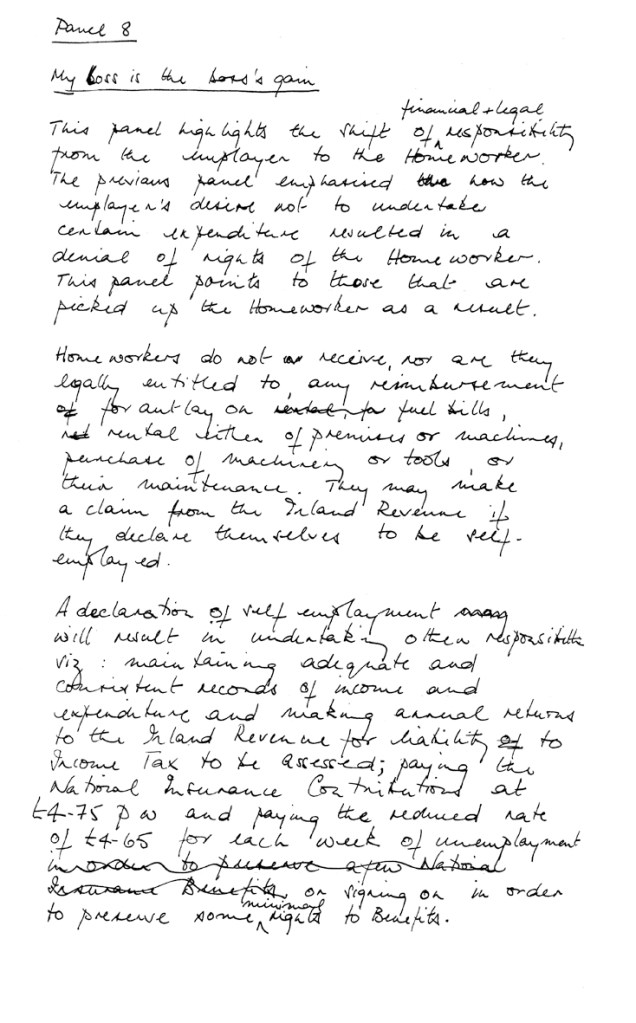 Panel 8
My loss is the boss's gain
financial + legal
This panel highlights the shift of responsibility
from the employer to the Homeworker.
The previous panel emphasised how the
employer's desire not to undertake
certain expenditure resulted in a
denial of rights of the Homeworker.
This panel points to those that are
picked up the Homeworker as a result.
Homeworkers do not receive, nor are they
legally entitled to, any reimbursement
of for outlay on rental, for fuel bills,
rental either of premises or machines,
purchase of machinery or tools, or
their maintenance. They may make
a claim from the Inland Revenue if
they declare themselves to be self-
employed.
A declaration of self employment
will result in undertaking other responsibilities
viz: maintaining adequate and
consistent records of income and
expenditure and making annual returns
to the Inland Revenue for liability of to
Income Tax to be assessed; paying the
National Insurance Contributions at
£4-75 pw and paying the reduced rate
of £4-65 for each week of unemployment
in order to preserve a few National
Insurance Benefits or signing on in order
minimal
to preserve some rights to Benefits.